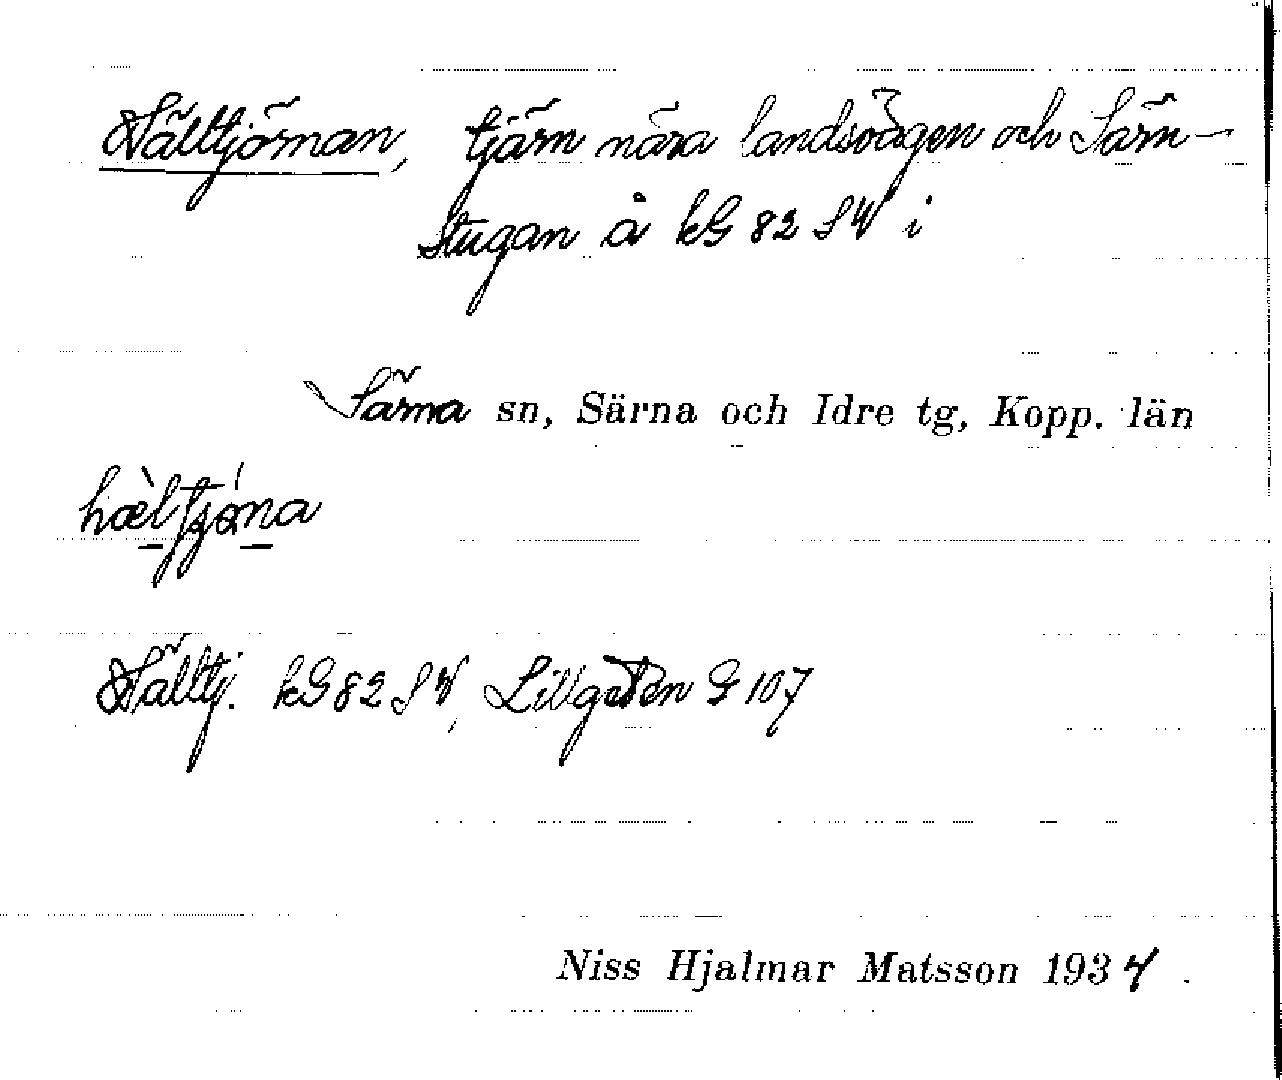 Hälltjörnan, tjärn nära landsvägen och Särn-
stugan å kG 82 SV i
Särna sn, Särna och Idre tg, Kopp. län
Hälltj. kG 82 SV, Lillgeten G 107
Niss Hjalmar Matsson 1934.